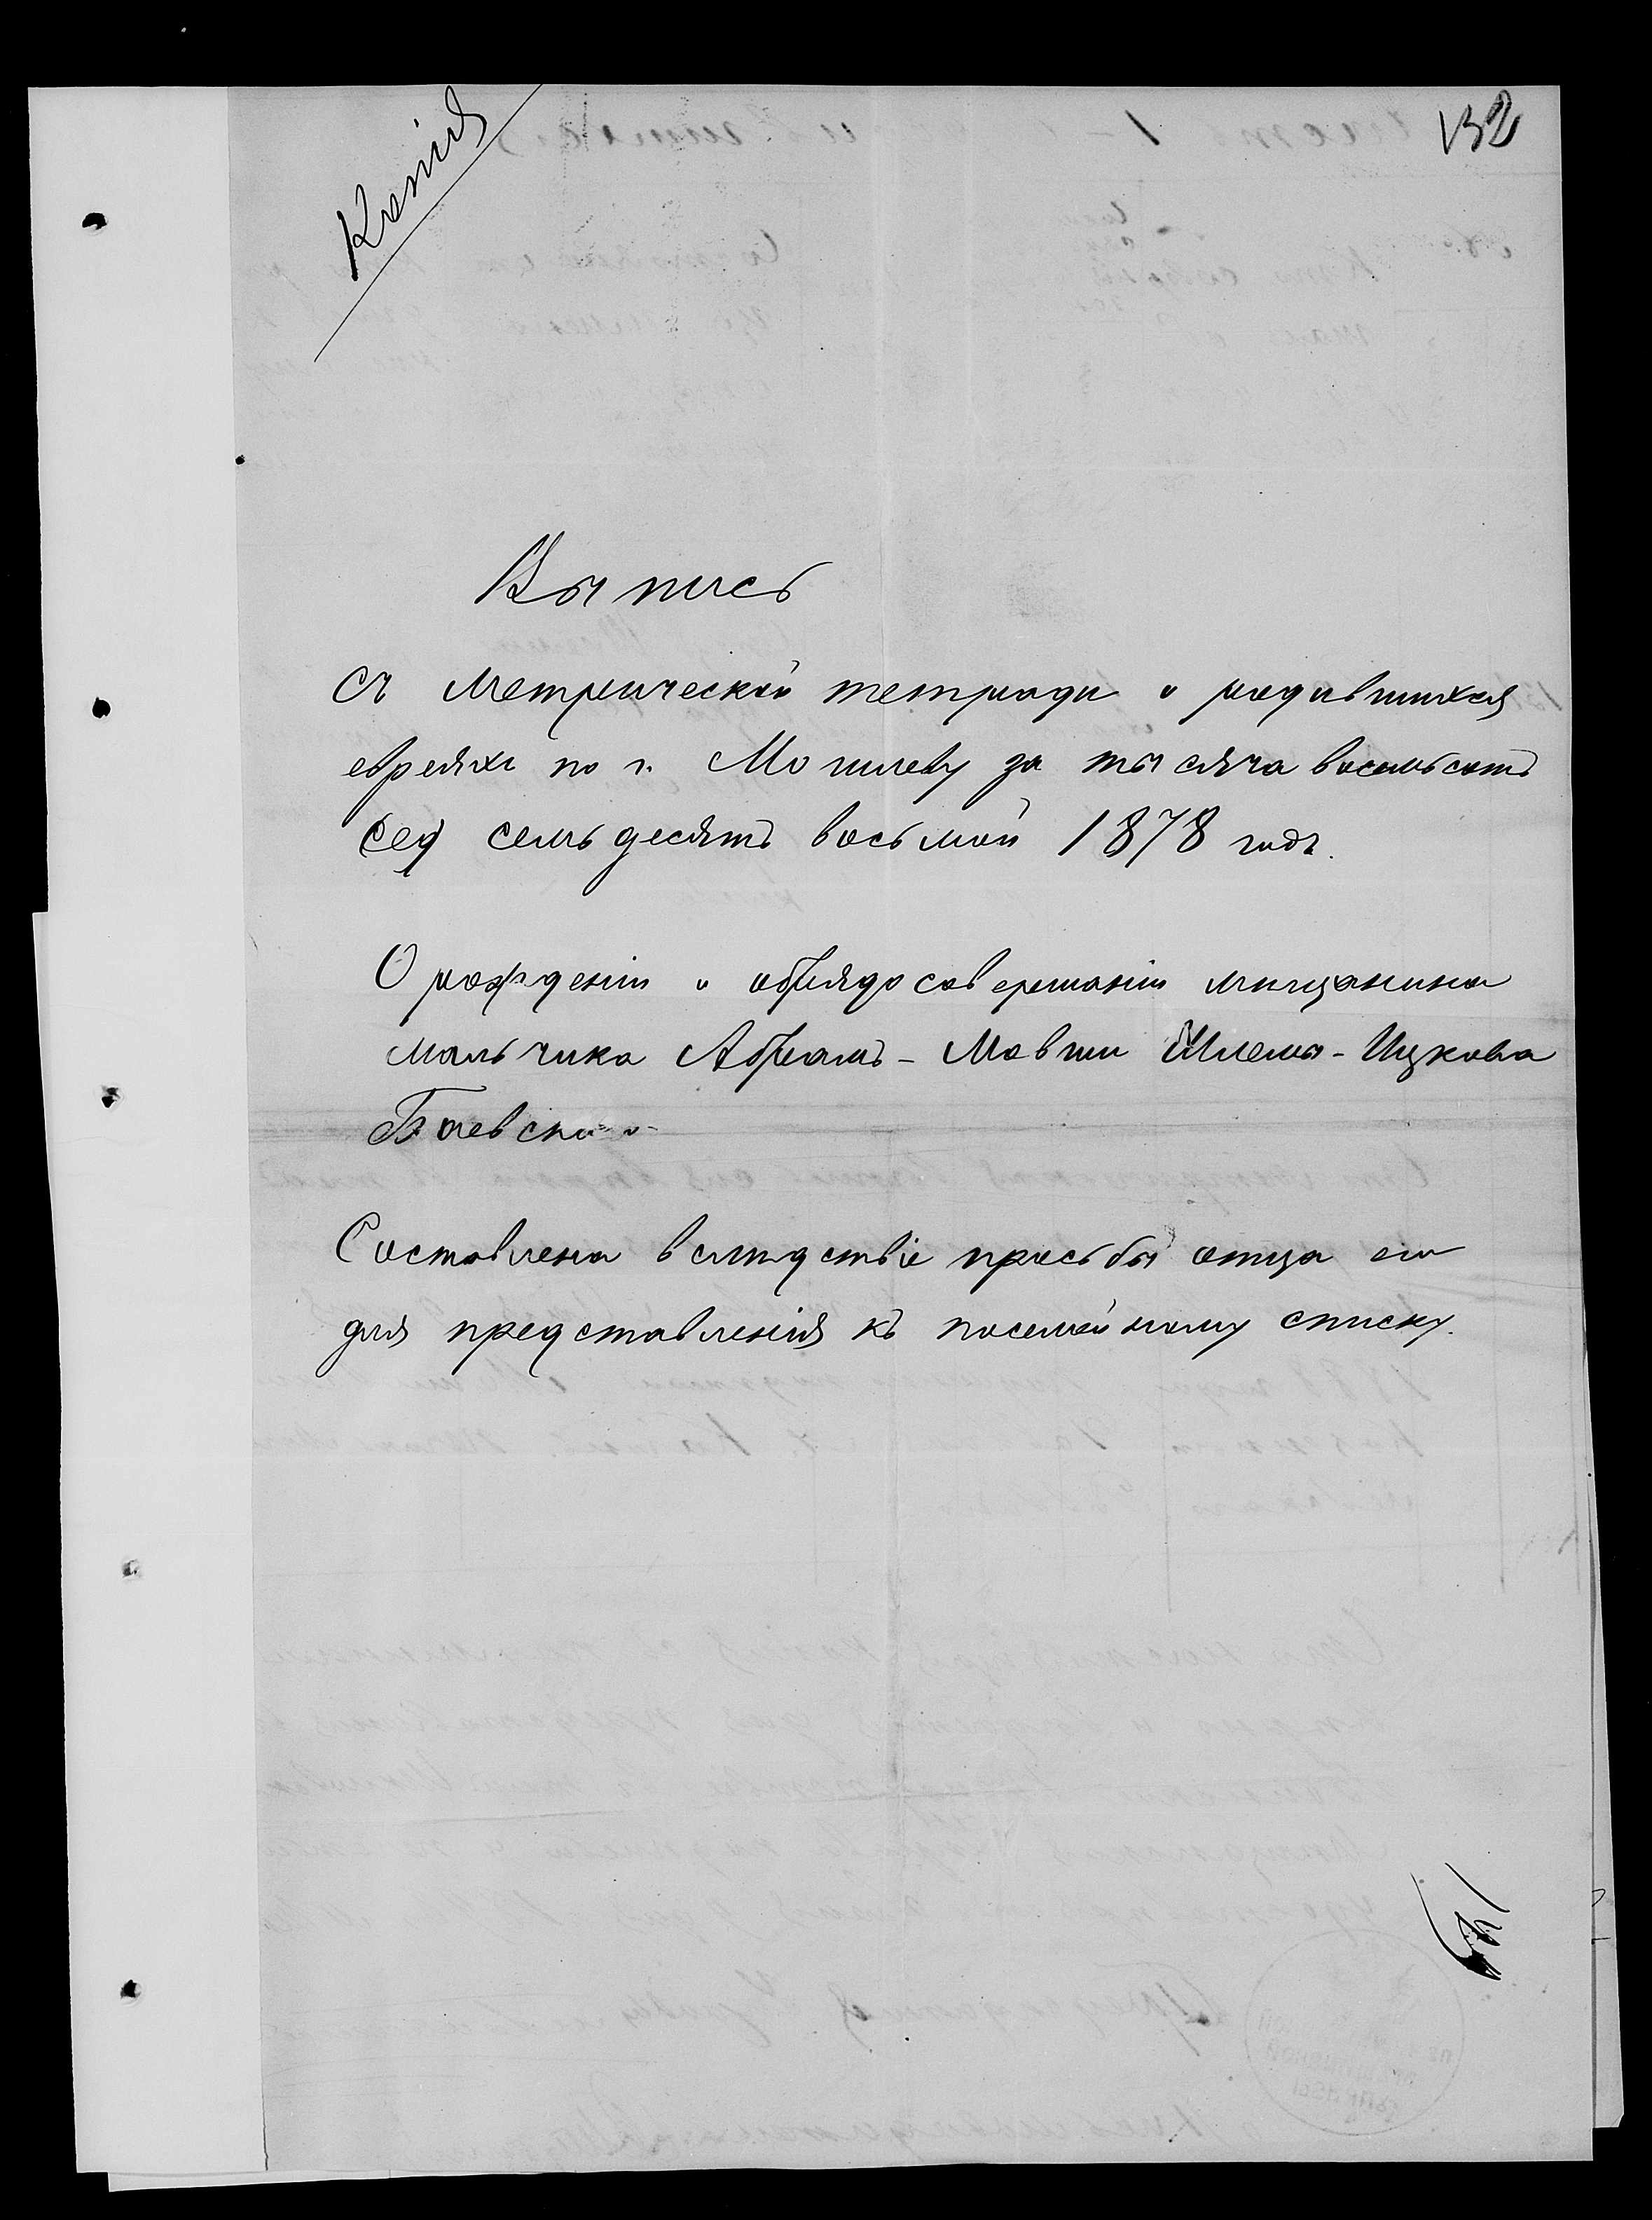 Копія
132
Выпись
съ метрической тетради о родившихся
евреяхъ по г. Могилеву за тысяча восемьсотъ
(се) семьдесятъ восьмой 1878 годъ.
О рожденіи и обрядосовершаніи мѣщанина
мальчика Абрамъ-Мовши Шлема-Ицкова
Баевскаго
Составлена вслѣдствіе просьбы отца его
для представленія къ посемейному списку.